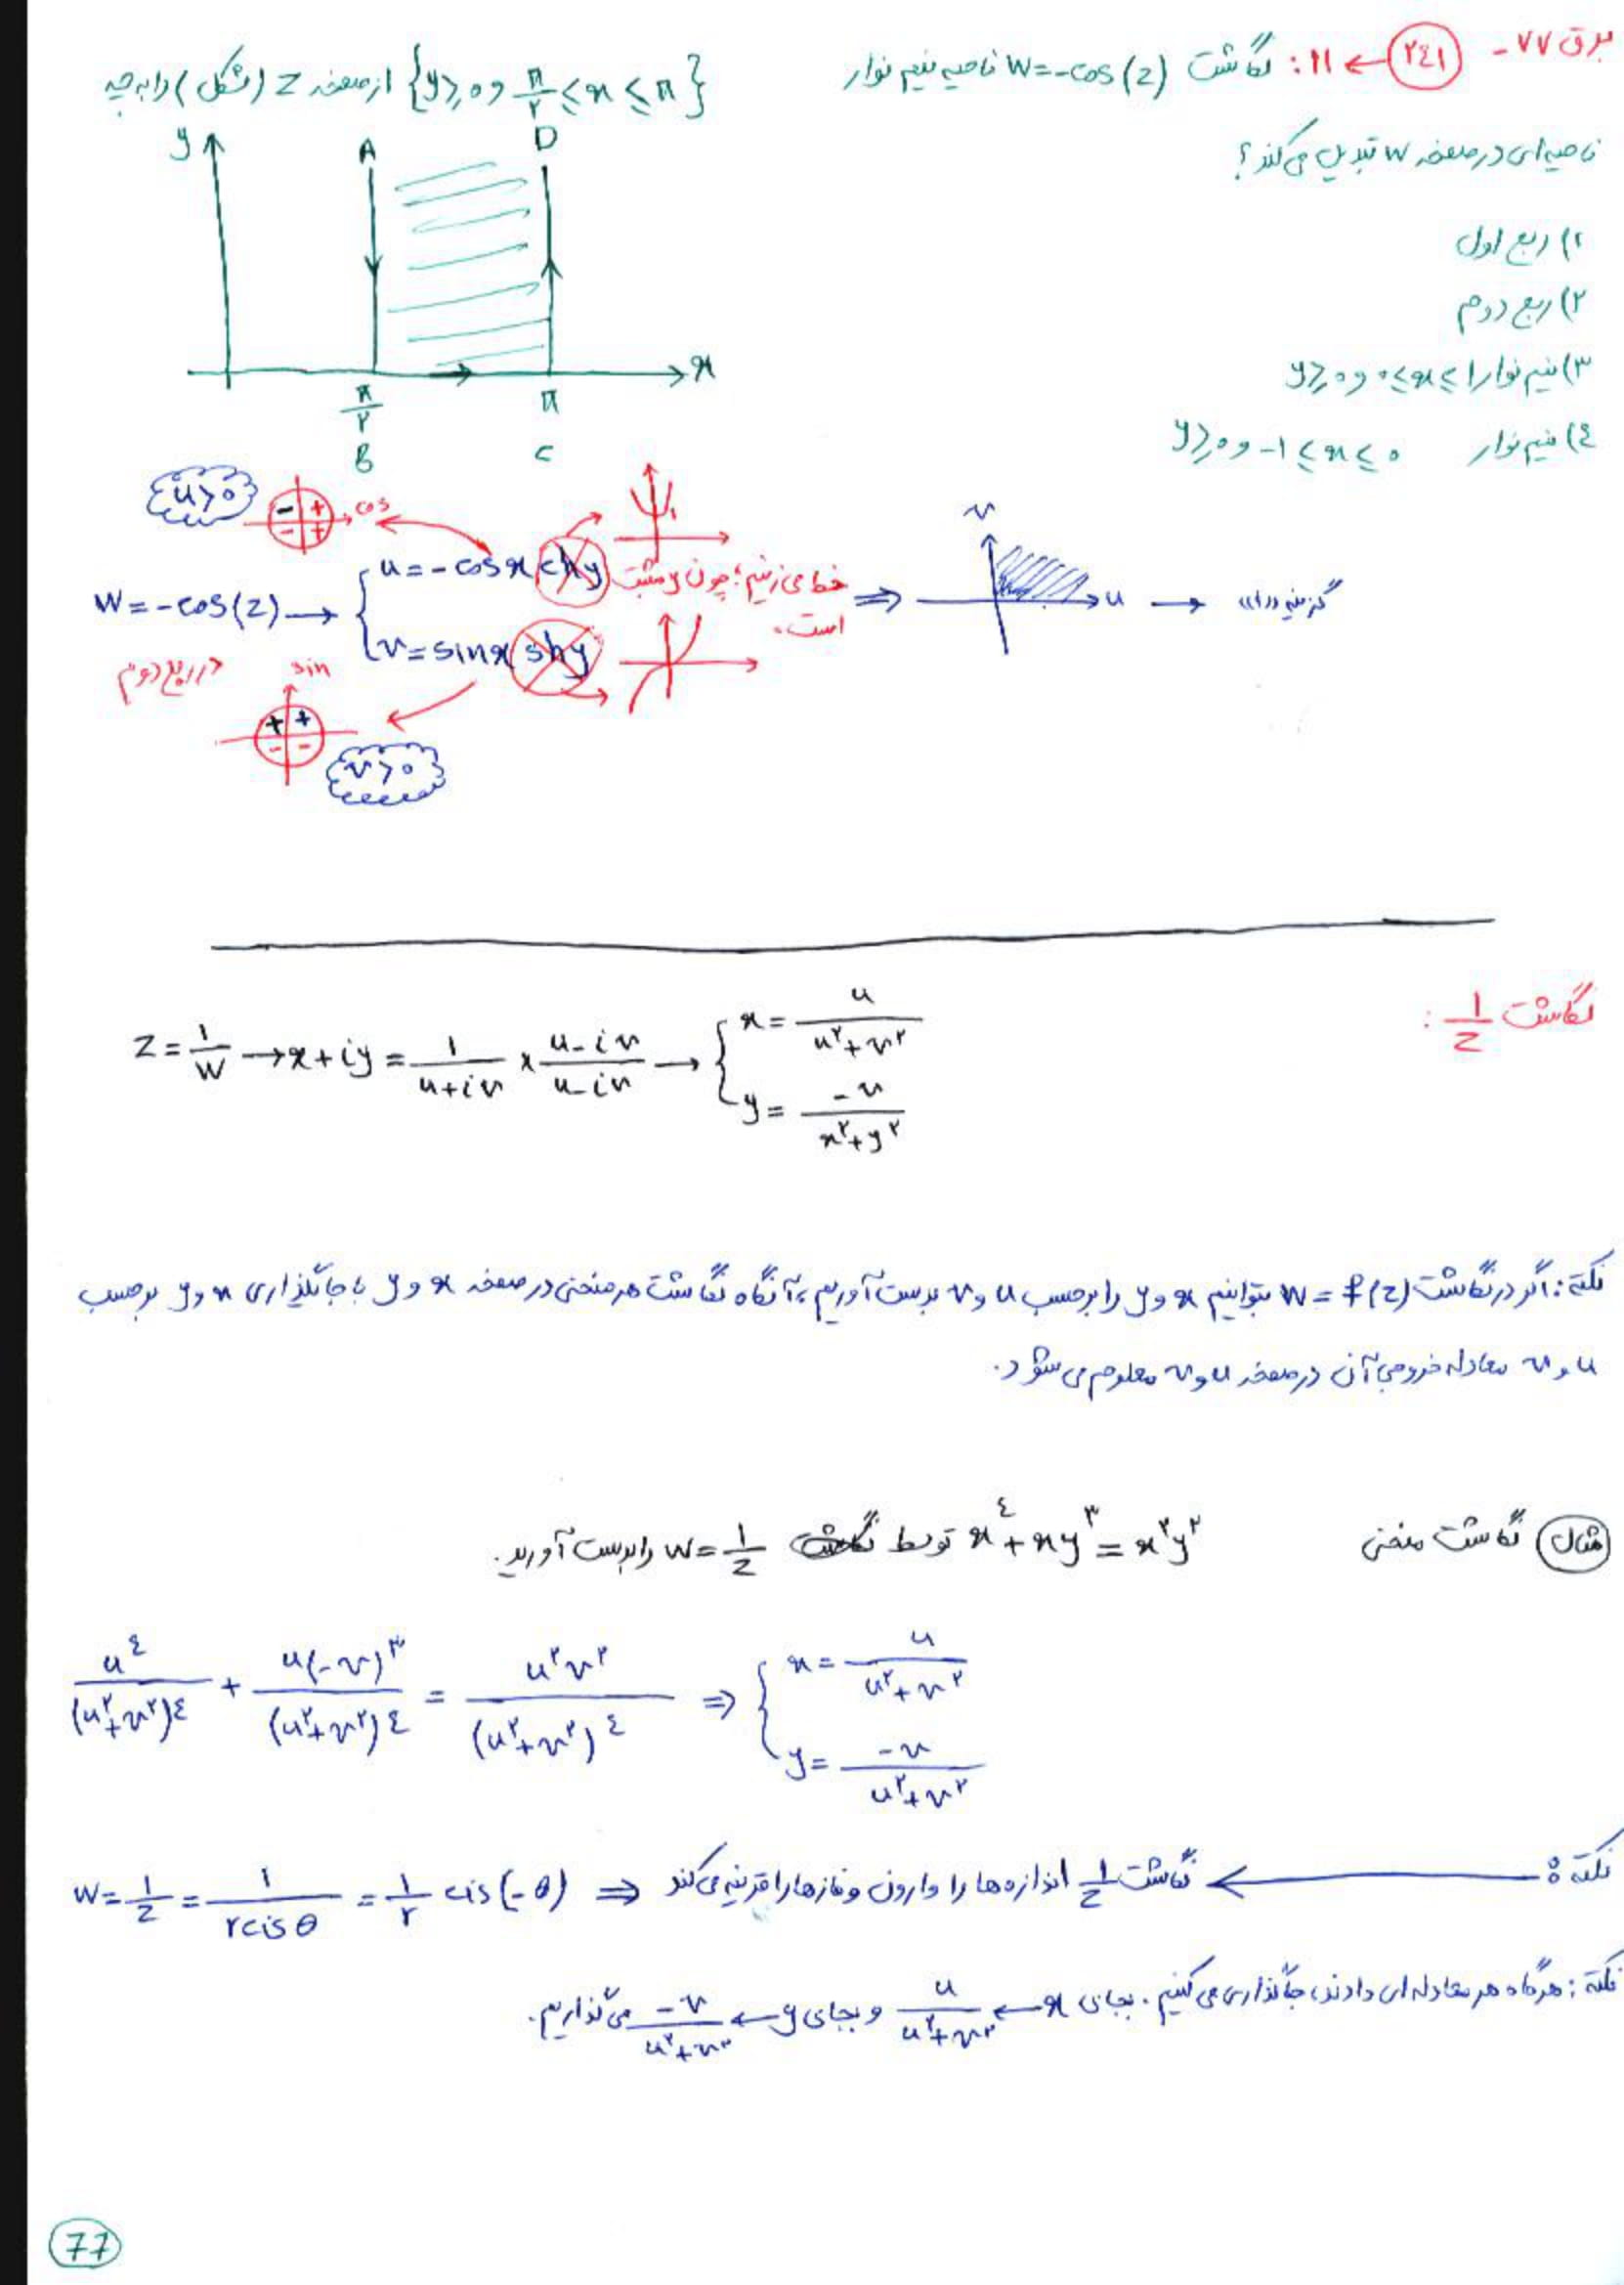 برق ۷۷ - ۲۴۱ ← ۱۱: نگاشت W = -cos(z) ناحیه نیم نوار
{y ≥ ۰ و π/۲ ≤ x ≤ π} از صفحه z (شکل) را به چه
ناحیه‌ای در صفحه w تبدیل می‌کند؟
۱) ربع اول
۲) ربع دوم
۳) نیم نوار ۱ ≥ x ≥ ۰ و y ≥ ۰
۴) نیم نوار -۱ ≤ x ≤ ۰ و y ≥ ۰
y A D
x
π/۲ π
B C
u > ۰ cos
۱
W = -cos(z) → { u = -cosx chy
v = sinx shy
خط می‌زنیم؛ چون y مثبت است.
⇒ v u → گزینه
در ربع دوم sin
+ +
- -
v > ۰
نگاشت ۱/z :
z = ۱/w → x + iy = ۱/(u+iv) × (u-iv)/(u-iv) → { x = u/(u²+v²)
y = -v/(x²+y²)
نکته: اگر در نگاشت W = f(z) بتوانیم x و y را برحسب u و v بدست آوریم، آنگاه نگاشت هر منحنی در صفحه x و y با جایگذاری x و y برحسب
u و v معادله خروجی آن در صفحه u و v معلوم می‌شود.
مثال نگاشت منحنی x⁴ + xy³ = x²y² توسط نگاشت w = ۱/z را بدست آورید.
u⁴/(u²+v²)⁴ + u(-v)³/(u²+v²)⁴ = u²v²/(u²+v²)⁴ ⇒ { x = u/(u²+v²)
y = -v/(u²+v²)
نکته: ← نگاشت ۱/z اندازه‌ها را وارون و فازها را قرینه می‌کند ⇒ W = ۱/z = ۱/(r cis θ) = ۱/r cis(-θ)
نکته: هرگاه هر معادله‌ای دادند، جاگذاری می‌کنیم. بجای x ← u/(u²+v²) و بجای y ← -v/(u²+v²) می‌گذاریم.
77